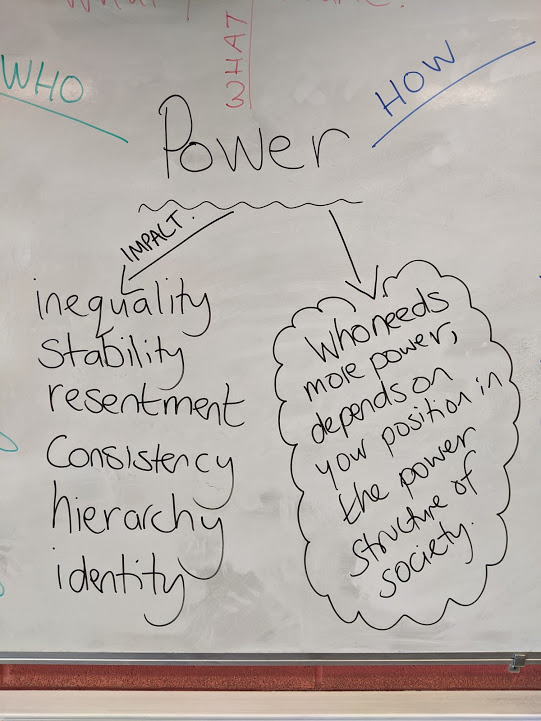 WHO
WHAT
HOW
Power
IMPACT.
inequality
Stability
resentment
Consistency
hierarchy
identity
Who needs
more power,
depends on
your position in
the power
structure of
society.